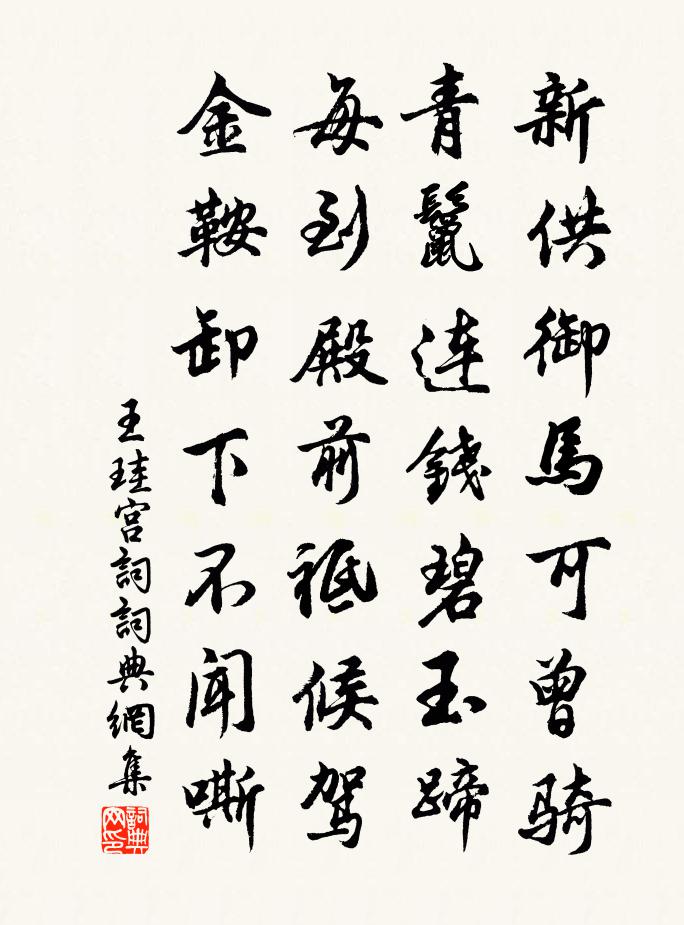 新供御馬可曾騎
青鬣連錢碧玉蹄
每到殿前祗候駕
金鞍卸下不聞嘶
王珪宮詞詞典網集
詞典网印